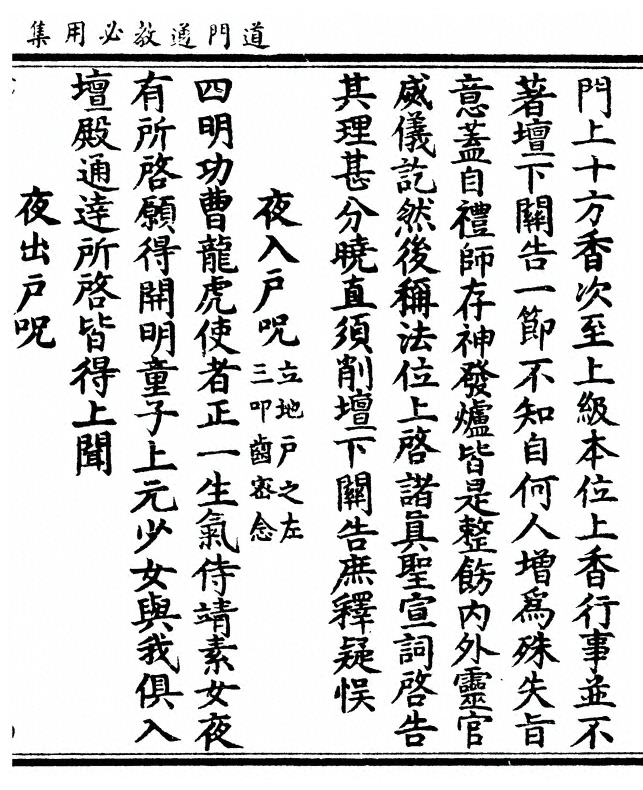 道門通教必用集
門上十方香次至上級本位上香行事並不
著壇下關告一節不知自何人增爲殊失旨
意蓋自禮師存神發爐皆是整飭內外靈官
威儀訖然後稱法位上啓諸眞聖宣詞啓告
其理甚分曉直須削壇下關告庶釋疑悮
夜入戶呪立地戶之左
三叩齒密念
四明功曹龍虎使者正一生氣侍靖素女夜
有所啓願得開明童子上元少女與我俱入
壇殿通達所啓皆得上聞
夜出戶呪